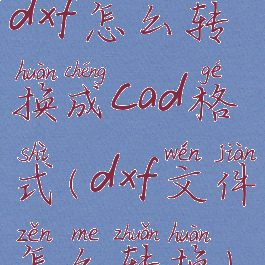 dxf怎么转
huàn chéng gé
换成cad格
shì wén jiàn
式(dxf文件
zěn me zhuǎn huàn
怎么转换)